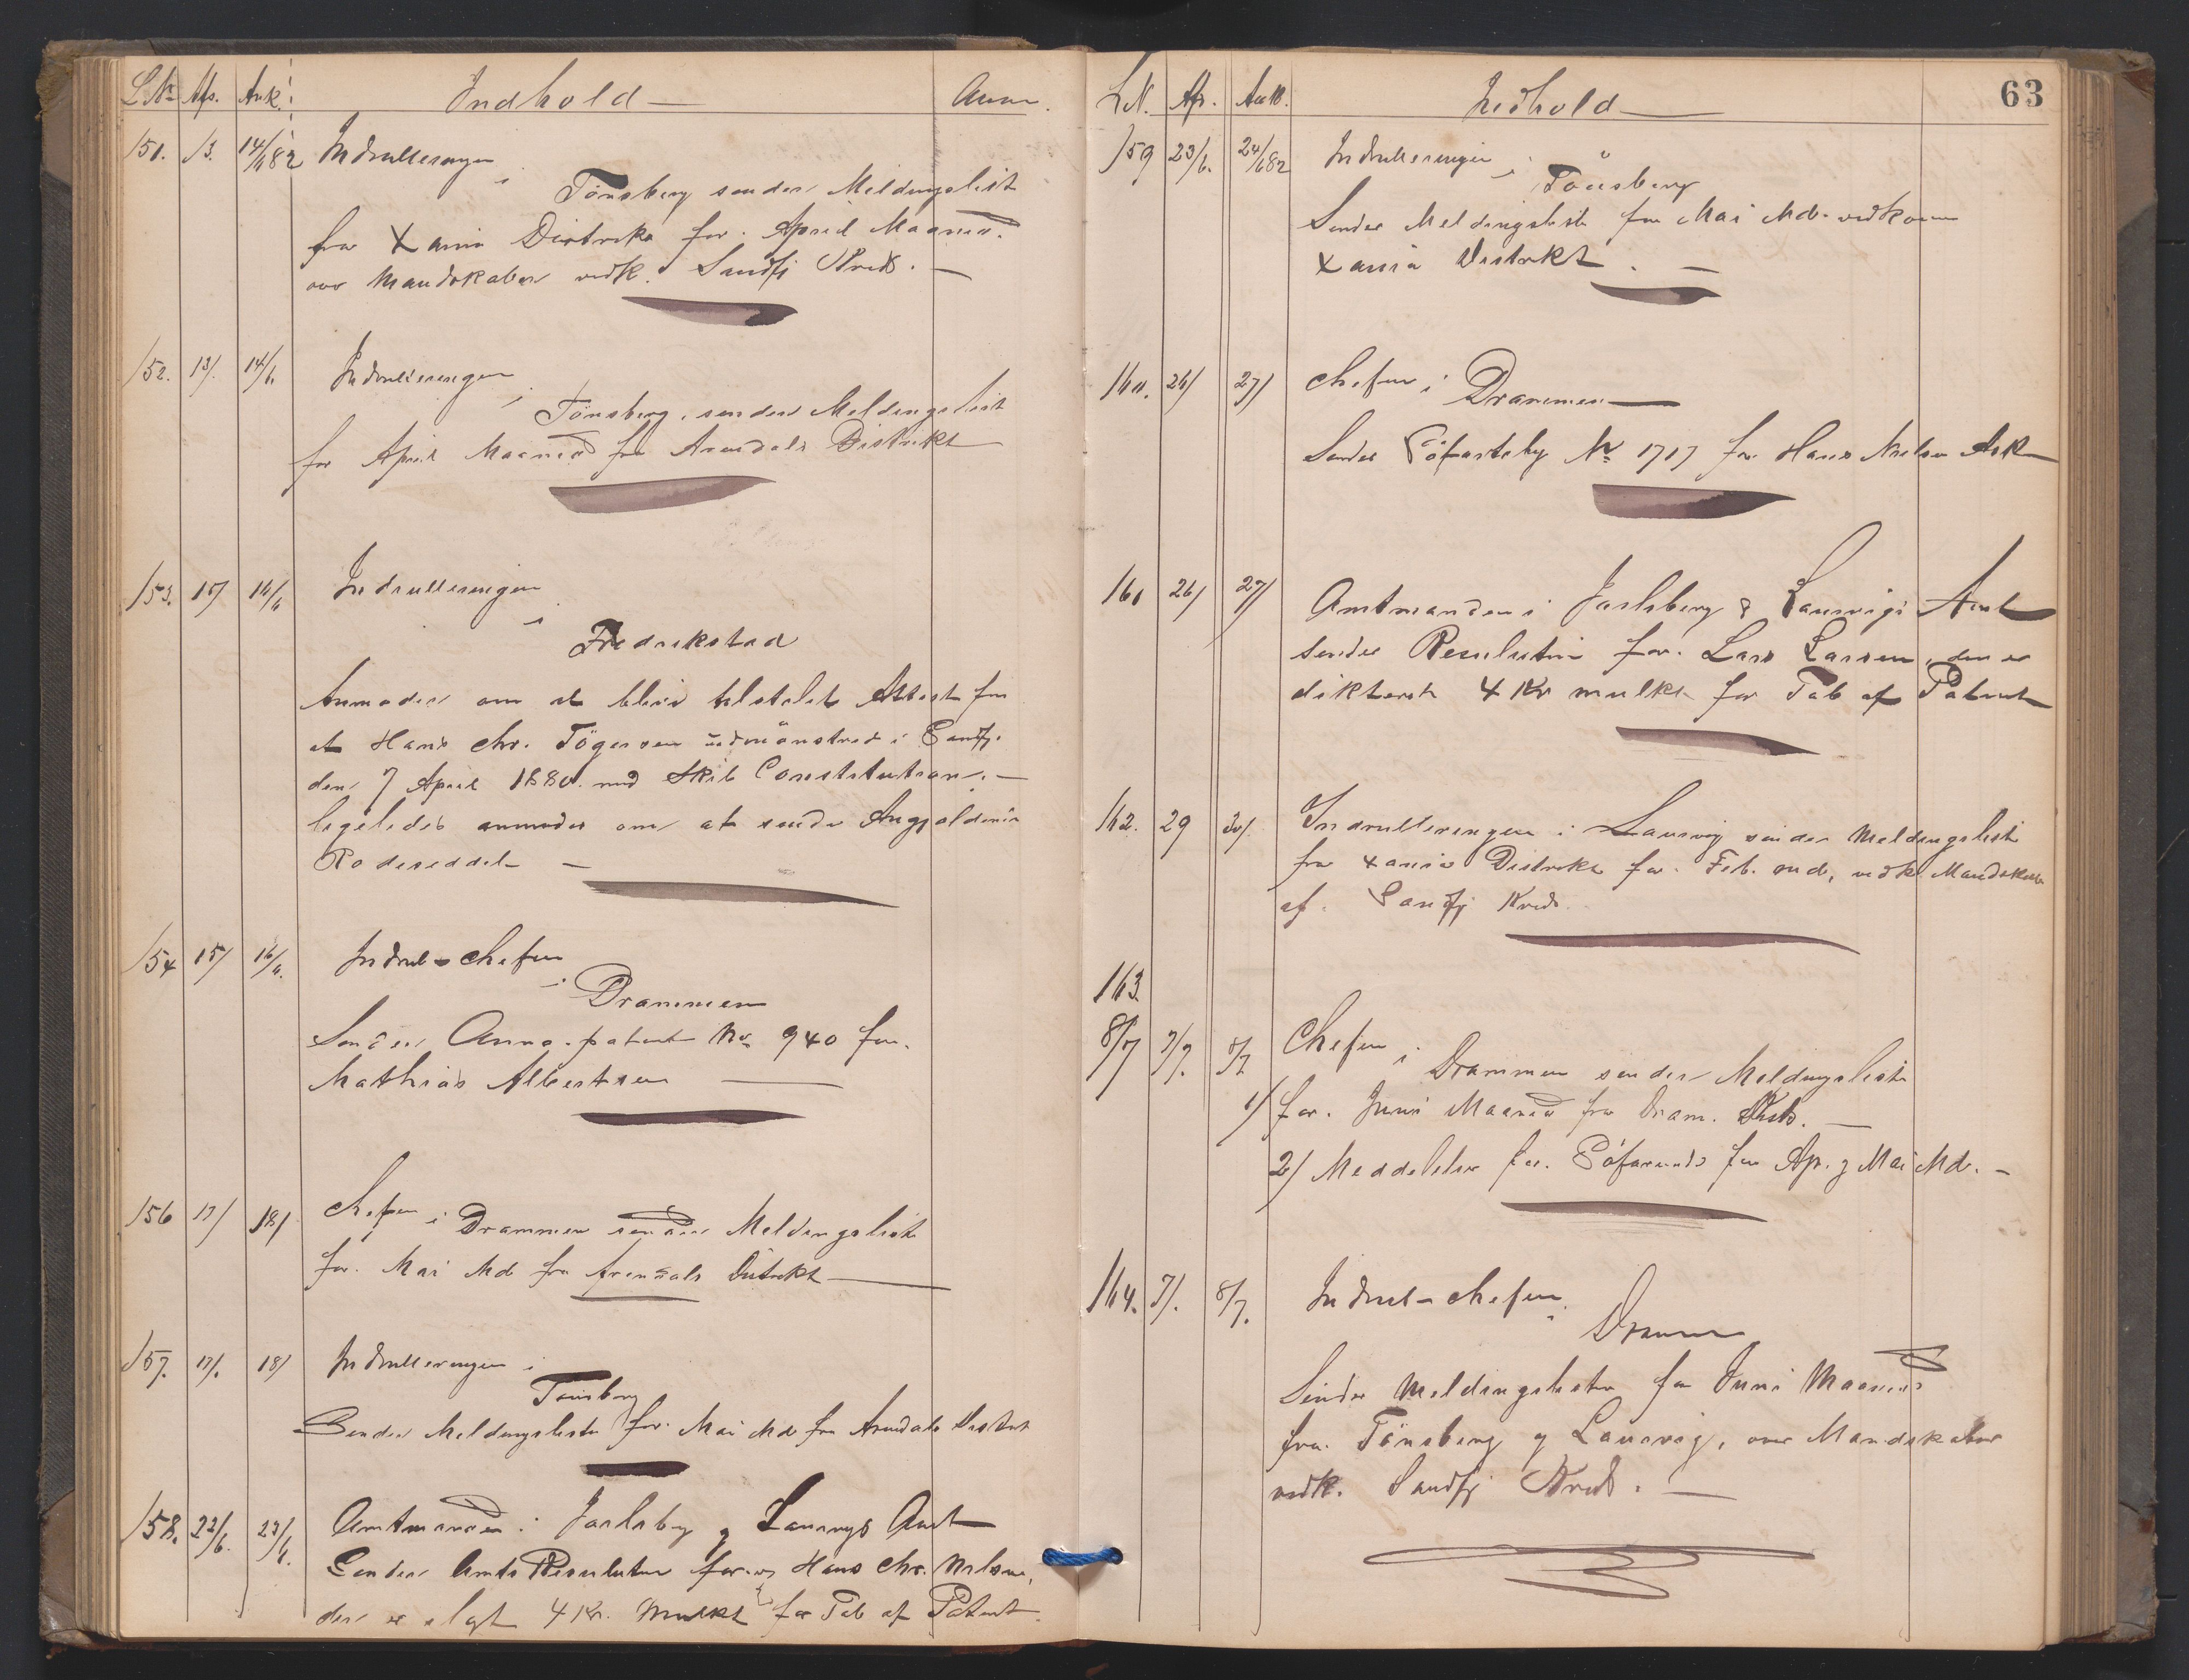 L.No Afs. Ank. Indhold Anm.
151. 13. 14/6 82 Indrulleringen
i Tönsberg sender Meldingslist
fra Xania Distrikt for April Maaned
over Mandskaber vedk. Sandfj Kreds.
152. 13/. 14/6. Indrulleringen
i Tönsberg, sender Meldingslist
for April Maaned fra Arendals Distrikt
153. 15/ 16/6 Indrulleringen
i
Fredrikstad
Anmoder om at blive tilstelet Attest for
at Hans Chr. Tögersen udmönstred i Sandfj.
den 7 April 1880. med Skib Constitution.
ligeledes anmodes om at sende Angjældende
Rodeseddel
154 15/ 16/6. Indrul-chefen
i Drammen
Sender Anno. patent No 940 for.
Mathias Albertsen
156 17/ 18/ Chefen i Drammen sender Meldingsliste
for. Mai Md fra Arendals Distrikt
157. 17/. 18/ Indrulleringen i
Tönsberg
Sender Meldingsliste for. Mai Md fra Arendals Distrikt
158. 22/6. 23/6. Amtmanden i Jarlsberg og Laurvigs Amt
Sender Amts Resulution for Hans Chr. Nilsen,
der er ilagt 4 Kr. Mulkt for Tab af Patent
63
L.N. Af. Ank. Indhold
159 23/6. 24/6 82 Indrulleringen i
Tönsberg
Sender Meldingsliste for Mai Md. vedkom
Xania Distrikt.
160. 26/ 27/ Chefen i Drammen
Sender Söfartsby No 1717 for Hans Nielsen Ask
161 26/ 27/ Amtmanden i Jarlsberg & Laurvigs Amt
sender Resulution for. Lars Larsen, den er
dikterest 4 Kr mulkt for Tab af Patent
162. 29 30/. Indrulleringen i Laurvig sender Meldingsliste
fra Xania Distrikt for. Feb. md, vedk. Mandskab
af. Sandfj Kreds.
163.
8/7 7/7. 8/7 Chefen i Drammen sender Meldingsliste
1/ for. Juni Maaned fra Dram. Dist.
2/ Meddelelse for. Söfarende for Ap. og Mai Md.
164. 7/. 8/7. Indrul-chefen
i Drammen
Sender Meldingslister for Juni Maaned
fra. Tönsberg og Laurvig, over Mandskaber
vedk. Sandfj Kreds.